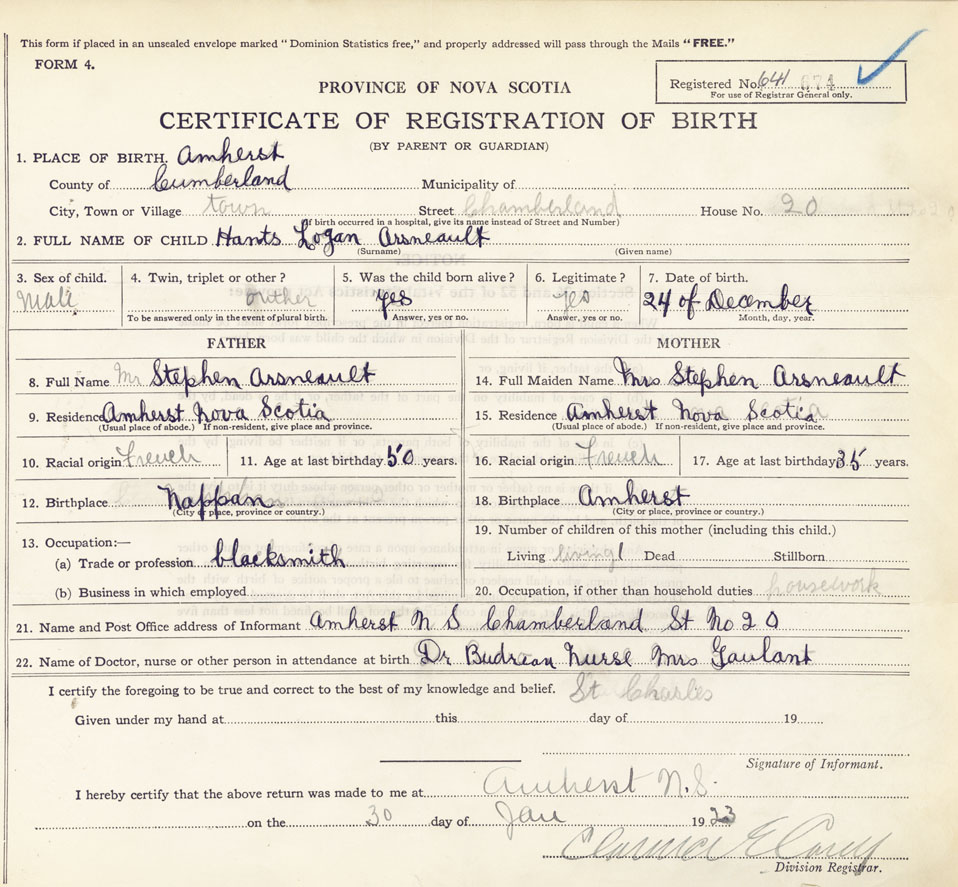 This form if placed in an unsealed envelope marked "Dominion Statistics free," and properly addressed will pass through the Mails "FREE."
FORM 4.
Registered No. 641 674
For use of Registrar General only.
PROVINCE OF NOVA SCOTIA
CERTIFICATE OF REGISTRATION OF BIRTH
(BY PARENT OR GUARDIAN)
1. PLACE OF BIRTH. Amherst
County of Cumberland Municipality of
City, Town or Village town Street Chamberland House No. 20
(If birth occurred in a hospital, give its name instead of Street and Number)
2. FULL NAME OF CHILD Hants Logan Arsneault
(Surname) (Given name)
3. Sex of child. 4. Twin, triplet or other? 5. Was the child born alive? 6. Legitimate? 7. Date of birth.
Male yes yes 24 of December
To be answered only in the event of plural birth. Answer, yes or no. Answer, yes or no. Month, day, year.
FATHER MOTHER
8. Full Name Mr Stephen Arsneault 14. Full Maiden Name Mrs Stephen Arsneault
9. Residence Amherst Nova Scotia 15. Residence Amherst Nova Scotia
(Usual place of abode.) If non-resident, give place and province. (Usual place of abode.) If non-resident, give place and province.
10. Racial origin French 11. Age at last birthday 50 years. 16. Racial origin French 17. Age at last birthday 35 years.
12. Birthplace Nappan 18. Birthplace Amherst
(City or place, province or country.) (City or place, province or country.)
13. Occupation:— 19. Number of children of this mother (including this child.)
(a) Trade or profession blacksmith Living living 1 Dead Stillborn
(b) Business in which employed 20. Occupation, if other than household duties housework
21. Name and Post Office address of Informant Amherst N S Chamberland St No 20
22. Name of Doctor, nurse or other person in attendance at birth Dr Budreau Nurse Mrs Gaulant
I certify the foregoing to be true and correct to the best of my knowledge and belief. St Charles
Given under my hand at this day of 19
Signature of Informant.
I hereby certify that the above return was made to me at Amherst N.S.
on the 30 day of Jan 1923
Clarence E Casey
Division Registrar.